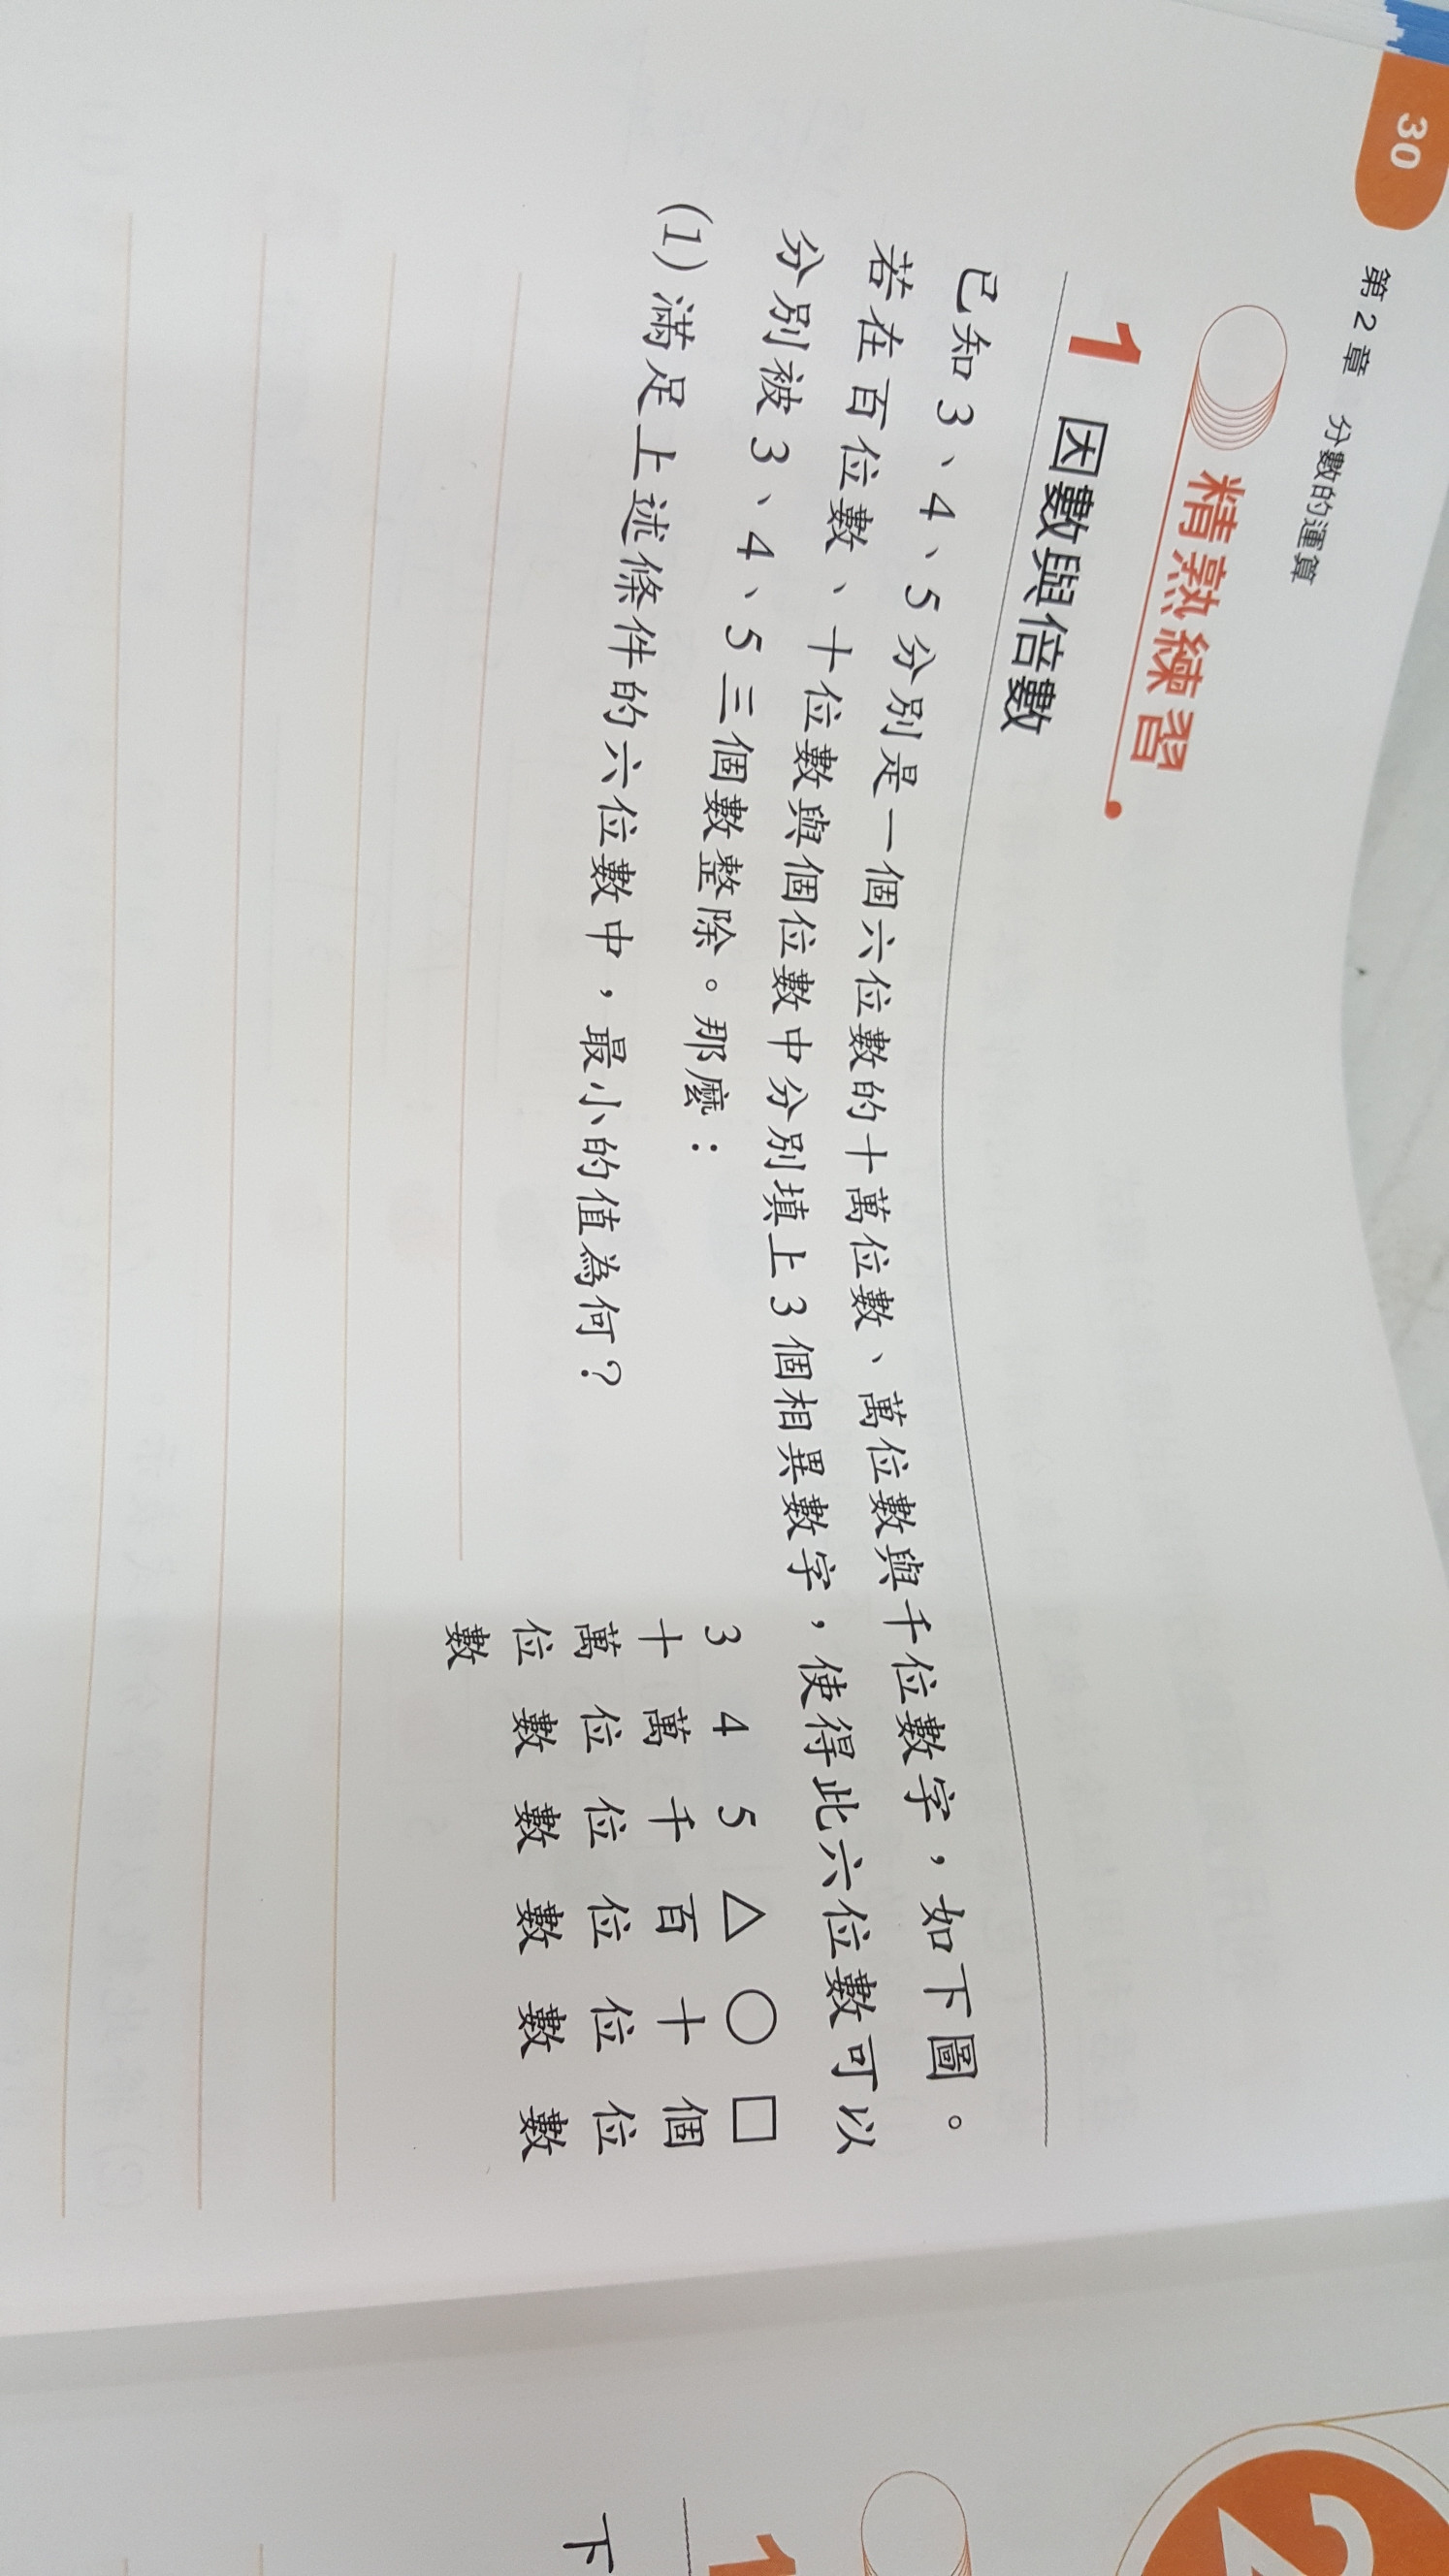 30
第2章 分數的運算
精熟練習
1 因數與倍數
已知3、4、5分別是一個六位數的十萬位數、萬位數與千位數字，如下圖。
若在百位數、十位數與個位數中分別填上3個相異數字，使得此六位數可以
分別被3、4、5三個數整除。那麼：
(1)滿足上述條件的六位數中，最小的值為何？
3 4 5 △ ○ □
十 萬 千 百 十 個
萬 位 位 位 位 位
位 數 數 數 數 數
數
2
1
下